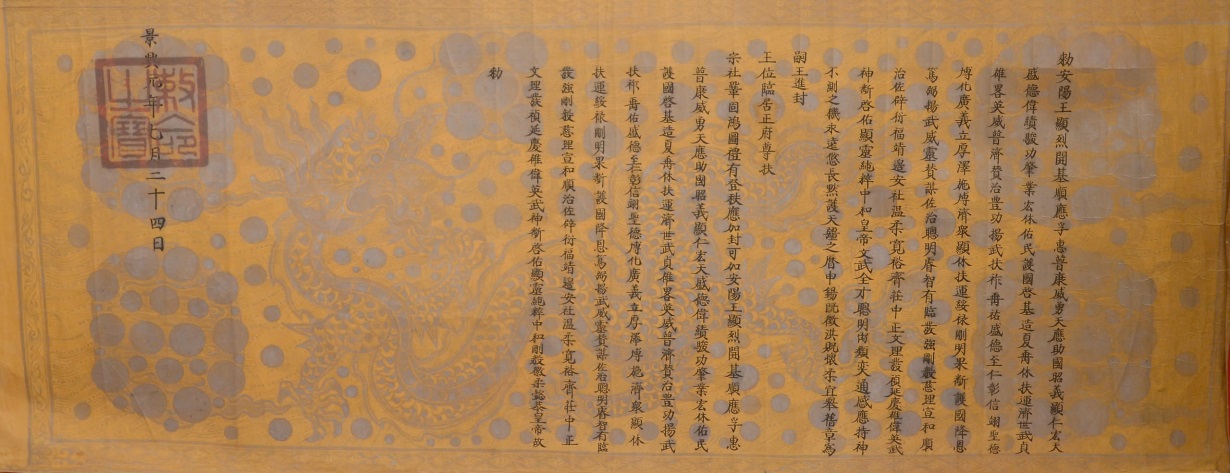 勅安陽王顯烈開基順應孚惠普康威勇天應助國昭義顯仁宏大
盛德偉績駿功肇業宏休佑民護國啓基造夏毒休扶運濟世武貞
雄畧英威普濟賛治豊功揚武扶祚毒祐盛德至仁彰信翊聖德
溥化廣義立厚澤施溥濟衆顯休扶運綏猷剛明果斷護國降恩
篤弼揚武威靈賛謀佐治聰明睿智有臨發強剛毅慈理宣和順
治佐辟衍福靖邊安社温柔寛裕齊莊中正文理發禎延慶雄偉英武
神斷啓佑顯靈純粹中和皇帝文武全才聰明尚類奕通感應持神
不測之機永遠悠長黙護天鍾之曆申錫既徴洪貺懷柔宜舉舊章爲
嗣王進封
王位臨居正府尊扶
宗社鞏固鴻圖禮有登秩應加封可加安陽王顯烈開基順應孚惠
普康威勇天應助國昭義顯仁宏大盛德偉績駿功肇業宏休佑民
護國啓基造夏毒休扶運濟世武貞雄畧英威普濟賛治豊功揚武
扶祚毒佑盛德至仁彰信翊聖德溥化廣義立厚澤溥施濟衆顯休
扶運綏猷剛明果斷護國降恩篤弼揚武威靈賛謀佐治聰明睿智有臨
發強剛毅慈理宣和順治佐辟衍福靖邊安社温柔寛裕齊莊中正
文理發禎延慶雄偉英武神斷啓佑顯靈純粹中和剛毅徽柔懿恭皇帝故
勅
景興元年七月二十四日
敕命之寶